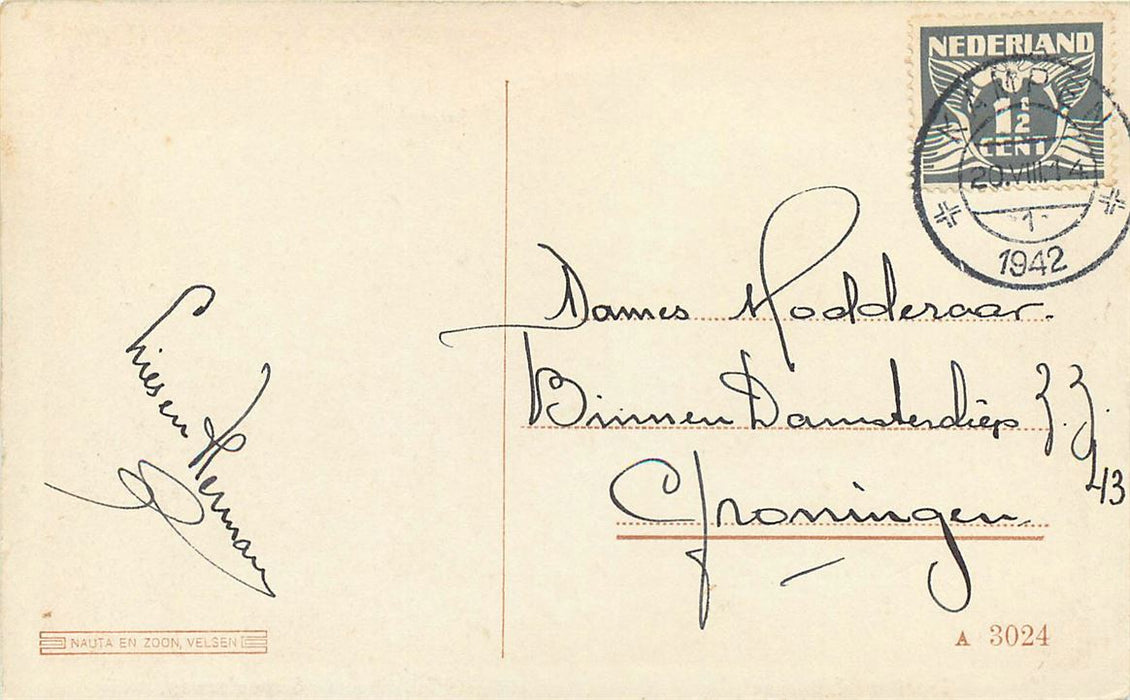 NEDERLAND
1½
CENT
KAMPEN
20.VIII.14
1
1942
Dames Modderaar.
Binnen Damsterdiep Z.Z.
43
Groningen
en Herman
NAUTA EN ZOON, VELSEN
A 3024